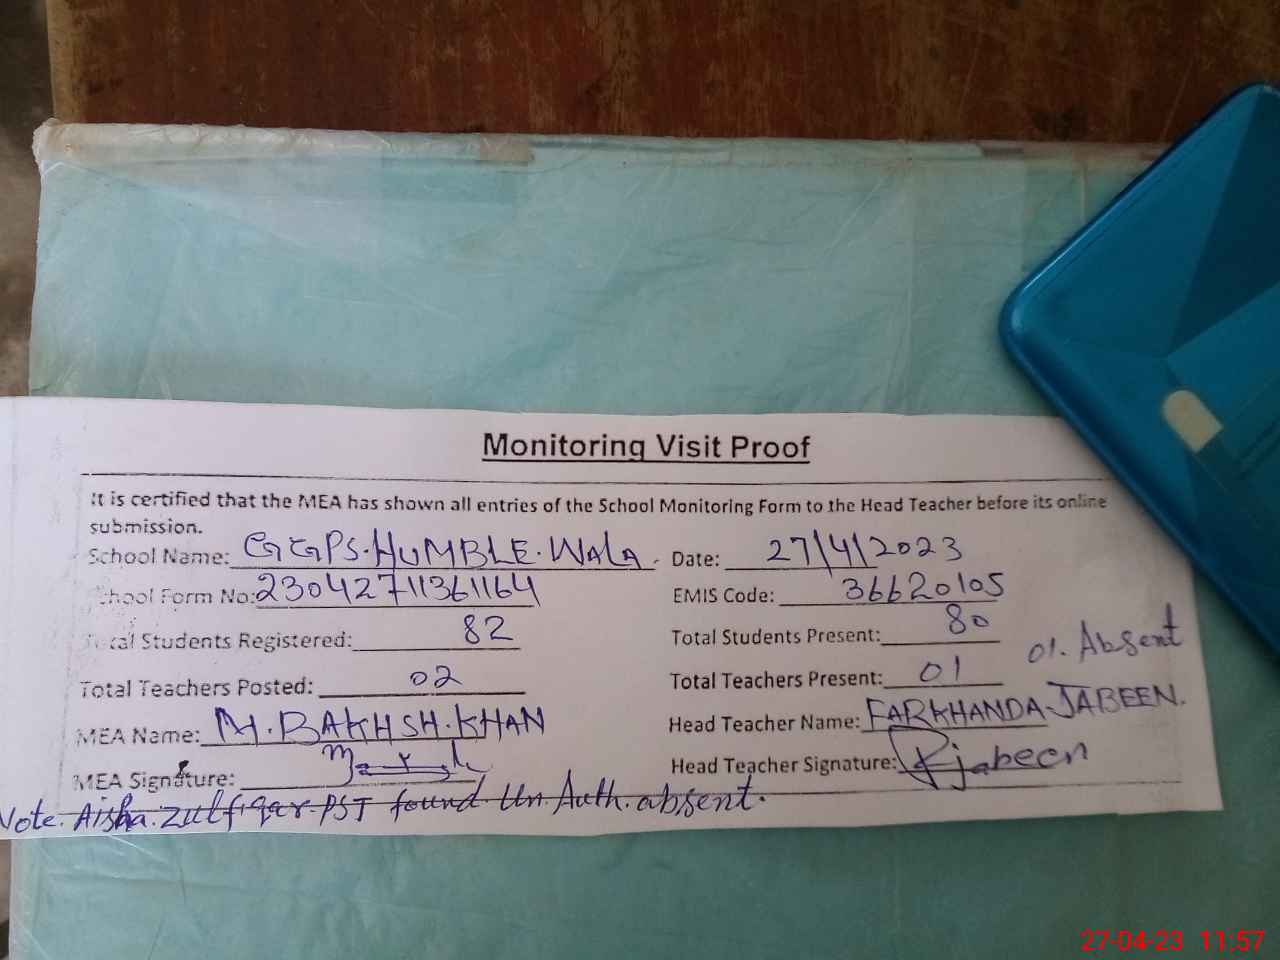 Monitoring Visit Proof
It is certified that the MEA has shown all entries of the School Monitoring Form to the Head Teacher before its online
submission.
School Name: GGPS. HUMBLE. WALA. Date: 27/4/2023
School Form No: 230427711361164 EMIS Code: 36620105
Total Students Registered: 82 Total Students Present: 80
Total Teachers Posted: 02 Total Teachers Present: 01 01. Absent
MEA Name: M. BAKHSH. KHAN Head Teacher Name: FARKHANDA JABEEN.
MEA Signature: Head Teacher Signature: Rjabeen
Note. Aisha. Zulfiqar. PST found Un. Auth. absent.
27-04-23 11:57